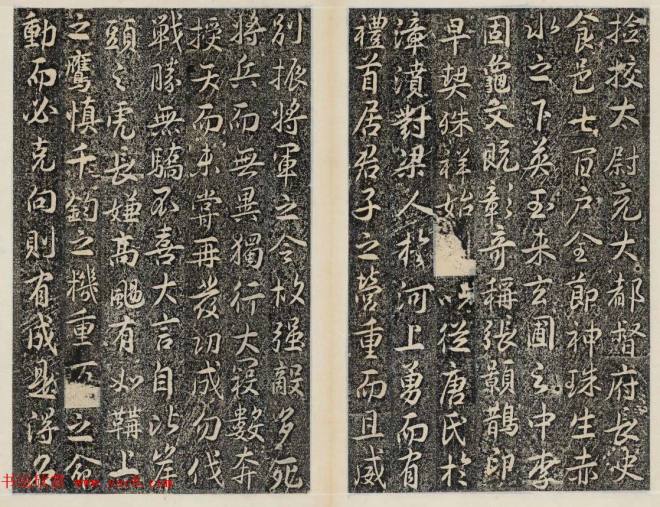 捡校太尉兖大都督府長史
食邑七百户全節神珠生赤
水之下英玉来玄圃之中李
固龜文既彰奇稱張顥鵲印
早契殊祥始以從唐氏於
漳濆對梁人於河上勇而有
禮首居君子之營重而且威
別振將軍之令故强敵多死
將兵而無異獨行大寝數奔
授天而未嘗再發功成勿伐
戰勝無驕不喜大言自比崖
頭之虎長嫌高颺有如鞲上
之鷹慎千鈞之機重之命
動而必克向則有成是得名
书法欣赏